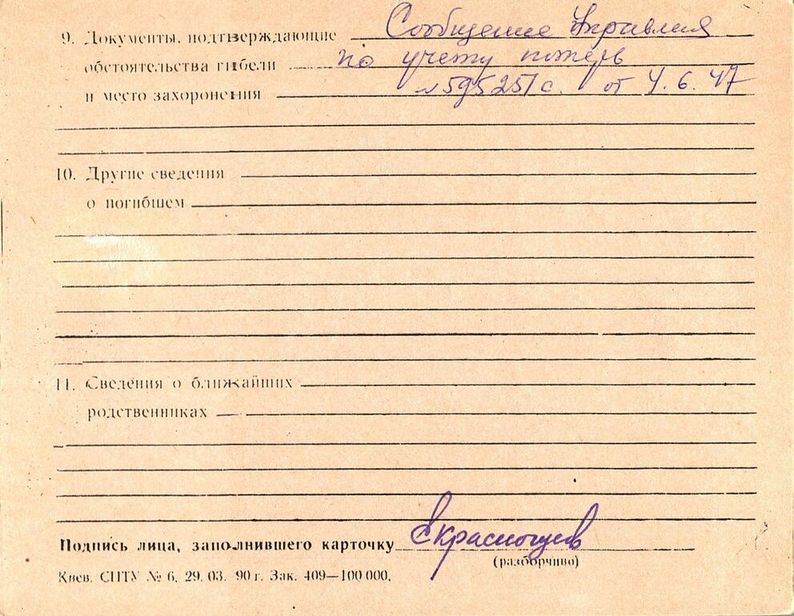 9. Документы, подтверждающие Сообщение Управлия
обстоятельства гибели по учету потерь
и место захоронения №595251с. от 4.6.47
10. Другие сведения
о погибшем
11. Сведения о ближайших
родственниках
Подпись лица, заполнившего карточку
(разборчиво)
Киев. СПТУ № 6. 29. 03. 90 г. Зак. 409—100 000.